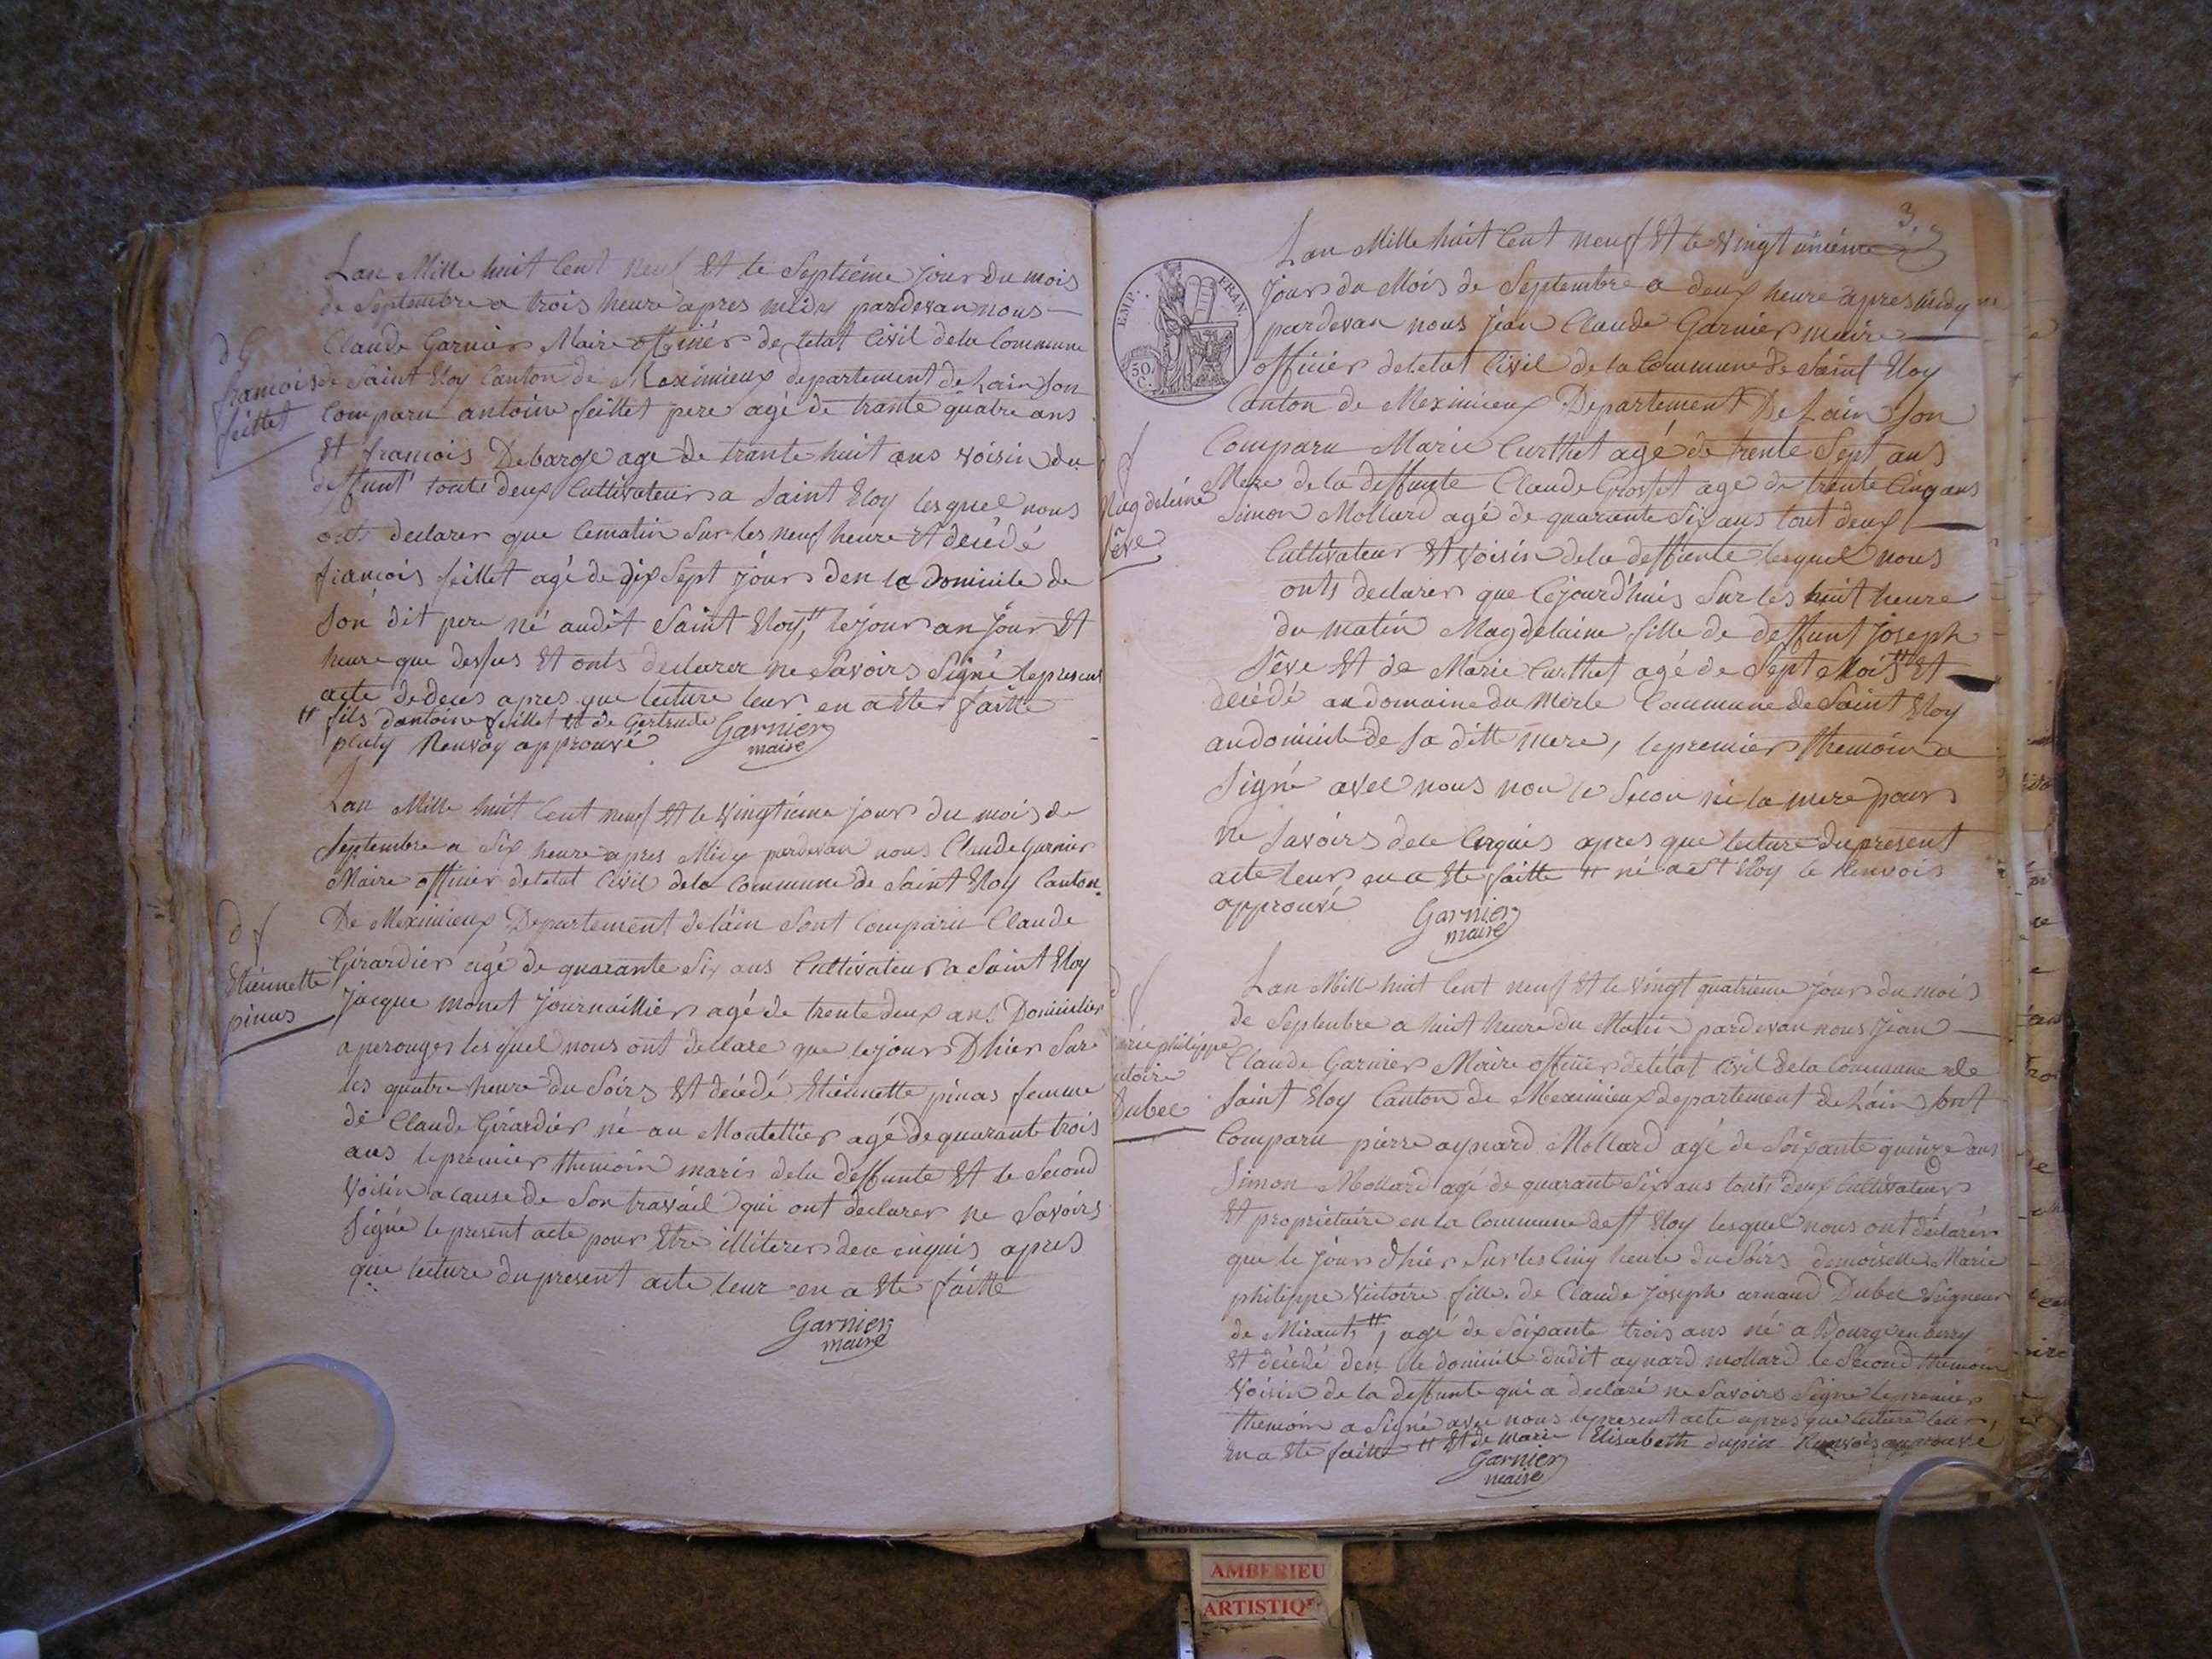 Lan Mille huit Cent neuf Et le Septiéme jour du mois
de Septembre a trois heure apres midy pardevan nous
Claude Garnier Maire officier de letat Civil dela Commune
de Saint Eloy Canton de Meximieux departement de Lain Son
Comparu antoine feillet pere agé de trante quatre ans
Et francois Debarge age de trante huit ans voisin du
deffunt toute deux Cultivateur a Saint Eloy lesquel nous
onts declarer que Cematin Sur les neuf heure Et decédé
francois feillet agé de dix Sept jour den le domicile de
Son dit pere né audit Saint Eloy, lejour an jour Et
heure que desus Et onts declarer ne Savoirs Signé lepresent
acte dedeces apres que lecture leur en a Ete faitte
fils dantoine feillet Et de Gertrude
Renvoy approuvé
Garnier
maire
francois
feillet
Lan Mille huit Cent neuf Et le vingtiéme jour du mois de
Septembre a Six heure apres Midy pardevan nous Claude Garnier
Maire officier deletat Civil dela Commune de Saint Eloy Canton
De Meximieux Departement delain Sont Comparu Claude
Girardier agé de quarante Six ans Cultivateur a Saint Eloy
jacque monet journaillier agé de trente deux ans Domicilier
a perouges lesquel nous ont declare que lejour Dhier Sur
les quatre heure du Soirs Et decédé Etiennette pinas femme
de Claude Girardier né au Montellier agé de quarante trois
ans le premier themoin maris dela deffunte Et le Second
voisin a cause de Son travail qui ont declarer ne Savoirs
Signé le present acte pour Etre illiterer dece enquis apres
que lecture dupresent acte leur en a Ete faitte
Garnier
maire
Etiennette
pinas
3.
EMP. FRAN.
50. C.
Lan Mille huit Cent neuf Et le vingt uniéme
jour du Mois de Septembre a deux heure apres midy
pardevan nous jean Claude Garnier maire
officier deletat Civil de la Commune de Saint Eloy
Canton de Meximieux Departement De Lain Son
Comparu Marie Curthet agé de trente Sept ans
Mere de la deffunte Claude Grosset age de trente Cinq ans
Simon Mollard agé de quarante Six ans tout deux
Cultivateur Et voisin dela deffunte lesquel nous
onts declarer que Cejourdhuis Sur les huit heure
du matin Magdelaine fille de deffunt joseph
Sève Et de Marie Curthet agé de Sept Mois Et
decédé au domaine du Merle Commune de Saint Eloy
audomicile de Sa ditte mere, le premier themoin a
Signé avec nous non le Secon ni la mere pour
ne Savoirs dece Enquis apres que lecture dupresent
acte leur en a Ete faitte né a St Eloy le Renvois
approuvé
Garnier
maire
Magdeleine
Sève
Lan Mille huit Cent neuf Et le vingt quatrieme jour du mois
de Septembre a huit heure du Matin pardevan nous jean
Claude Garnier Maire officier deletat Civil dela Commune de
Saint Eloy Canton de Meximieux departement de Lain Sont
Comparu pierre aynard Mollard agé de Soixante quinze ans
Simon Mollard agé de quarante Six ans touts deux Cultivateur
Et propriétaire en la Commune de St Eloy lesquel nous ont déclarér
que le jour dhier Sur les Cinq heure du Soirs demoiselle Marie
philippe Victoire fille de Claude joseph arnaud Dubec Seigneur
de Miraut, agé de Soixante trois ans né a Bourge en berry
Et decédé den le domicile dudit aynard mollard le Second themoin
voisin de la deffunte qui a declaré ne Savoirs Signe le premier
themoin a Signé avec nous lepresent acte apres que lecture leur
en a Ete faitte Et de marie Elisabeth dupin Renvois approuvé
Garnier
maire
philippe
Dubec
AMBERIEU
ARTISTIQ